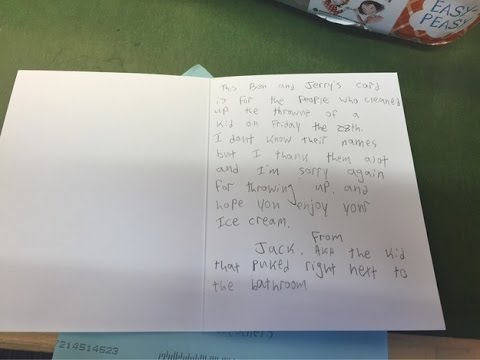 EASY-
PEASY
This Ben and Jerry's card
is for the people who cleaned
up the throwup of a
kid on Friday the 28th.
I dont know their names
but I thank them alot
and I'm sorry again
for throwing up, and
hope you enjoy your
Ice cream.
From
Jack, AKA the kid
that puked right next to
the bathroom
7214514523